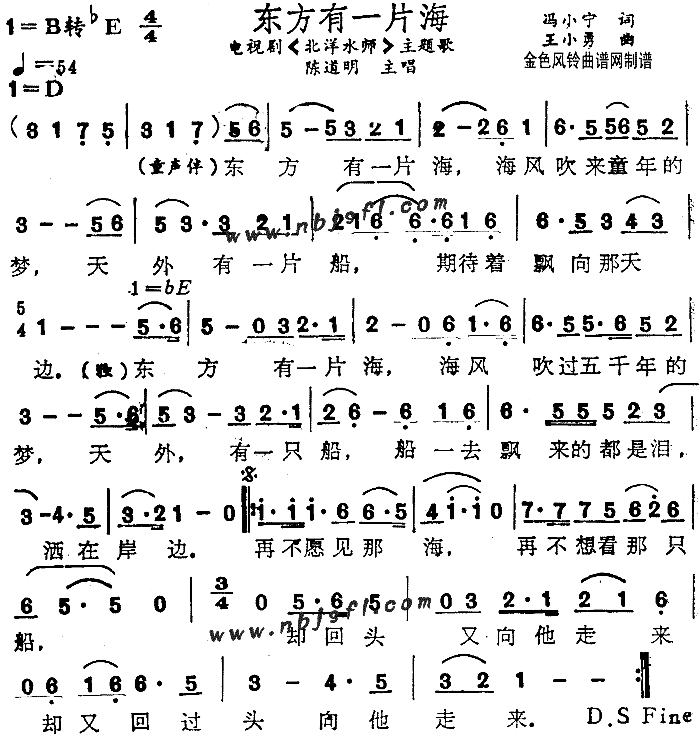 东方有一片海
1=B转♭E 4/4
电视剧《北洋水师》主题歌
冯小宁 词
王小勇 曲
♩=54
陈道明 主唱
金色风铃曲谱网制谱
1=D
(3 1 7 5 | 3 1 7 ) 5 6 | 5 - 5 3 2 2 1 | 2 - 2 6 6 1 | 6 · 5 5 6 5 2 |
(童声伴) 东 方 有一片 海, 海风 吹来童年的
3 - - 5 6 | 5 3 · 3 2 1 | 2 1 6 6 · 6 1 6 | 6 · 5 3 4 3 |
www.nbjsfl.com
梦, 天 外 有 一 片 船, 期待着 飘向那天
1=bE
5/4 1 - - - 5 · 6 | 5 - 0 3 2 · 1 | 2 - 0 6 1 · 6 | 6 · 5 5 · 6 5 2 |
边. (独) 东 方 有一片 海, 海 风 吹过五千年的
3 - - 5 · 6 | 5 3 - 3 2 · 1 | 2 6 - 6 1 6 | 6 · 5 5 5 2 3 |
梦, 天 外, 有一只 船, 船 一去 飘 来的都是泪,
3 - 4 · 5 | 3 · 2 1 - 0 | 1 · 1 1 · 6 6 · 5 | 4 1 · 1 0 | 7 · 7 7 5 6 2 6 |
洒在 岸 边. 再不愿见那 海, 再不想看那只
6 5 · 5 0 | 3/4 0 5 · 6 5 | 0 3 2 · 1 | 2 1 6 |
www.nbjsfl.com
船, 却回头 又向他走 来
0 6 1 6 6 · 5 | 3 - 4 · 5 | 3 2 1 - :|
却又 回过 头 向他 走 来. D.S Fine